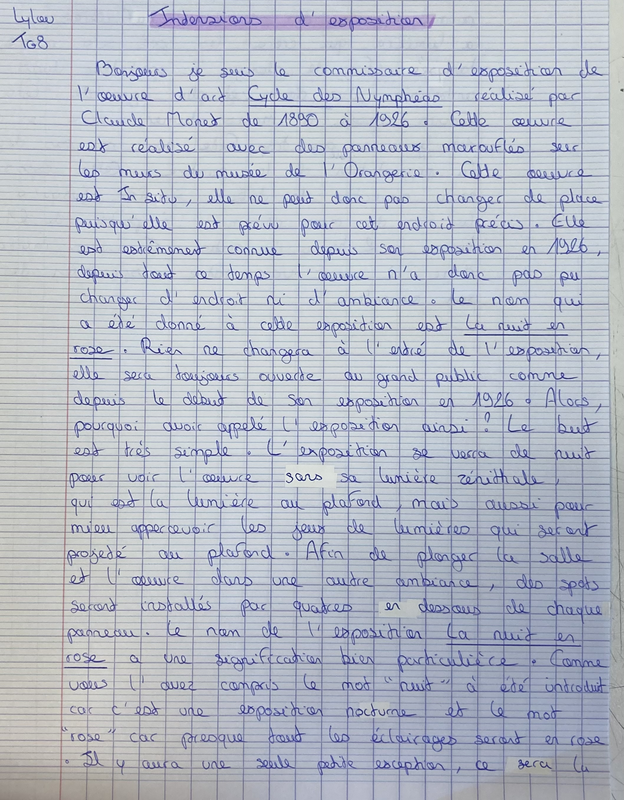 Lylou
TG8
Intensions d'exposition
Bonjours je suis le commissaire d'exposition de
l'œuvre d'art Cycle des Nymphéas réalisé par
Claude Monet de 1890 à 1926. Cette œuvre
est réalisé avec des panneaux marouflés sur
les murs du musée de l'Orangerie. Cette œuvre
est In situ, elle ne peut donc pas changer de place
puisqu'elle est prévu pour cet endroit précis. Elle
est extrêmement connue depuis son exposition en 1926,
depuis tout ce temps l'œuvre n'a donc pas pu
changer d'endroit ni d'ambiance. Le nom qui
a été donné à cette exposition est La nuit en
rose. Rien ne changera à l'entré de l'exposition,
elle sera toujours ouverte au grand public comme
depuis le début de son exposition en 1926. Alors,
pourquoi avoir appelé l'exposition ainsi ? Le but
est très simple. L'exposition se verra de nuit
pour voir l'œuvre sans sa lumière zénithale,
qui est la lumière au plafond, mais aussi pour
mieu appercevoir les jeux de lumières qui seront
projeté au plafond. Afin de plonger la salle
et l'œuvre dans une autre ambiance, des spots
seront installés par quatres en dessous de chaque
panneau. Le nom de l'exposition La nuit en
rose a une signification bien particulière. Comme
vous l'avez compris le mot "nuit" à été introduit
car c'est une exposition nocturne et le mot
"rose" car presque tout les éclairages seront en rose
. Il y aura une seule petite exception, ce sera la